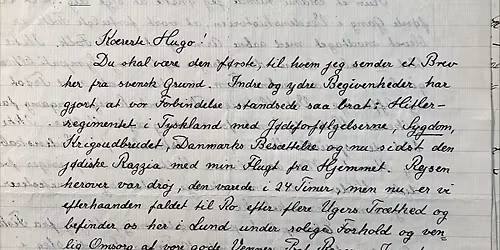 Kæreste Hugo!
Du skal være den første, til hvem jeg sender et Brev
her fra svensk Grund. Indre og ydre Begivenheder har
gjort, at vor Forbindelse standsede saa brat: Hitler-
regimentet i Tyskland med Jødeforfølgelserne, Sygdom,
Krigsudbrudet, Danmarks Besættelse og nu sidst den
jødiske Razzia med min Flugt fra Hjemmet. Rejsen
herover var drøj, den varede i 24 Timer, men nu er vi
efterhaanden faldet til Ro efter flere Ugers Træthed og
befinder os her i Lund under rolige Forhold og ven-
lig Omsorg af vore gode Venner